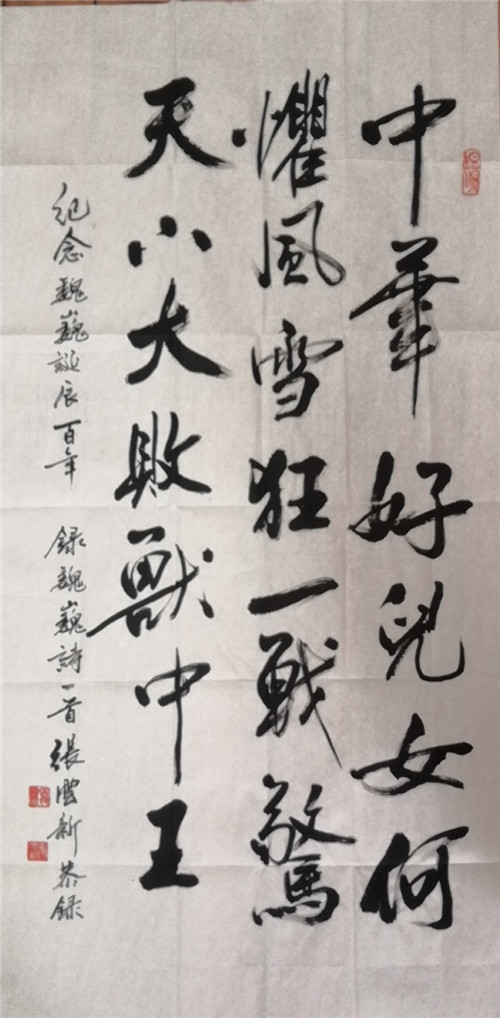 中華好兒女何
懼風雪狂一戰驚
天小大敗獸中王
纪念魏巍誕辰百年 録魏巍詩一首張雲新恭録